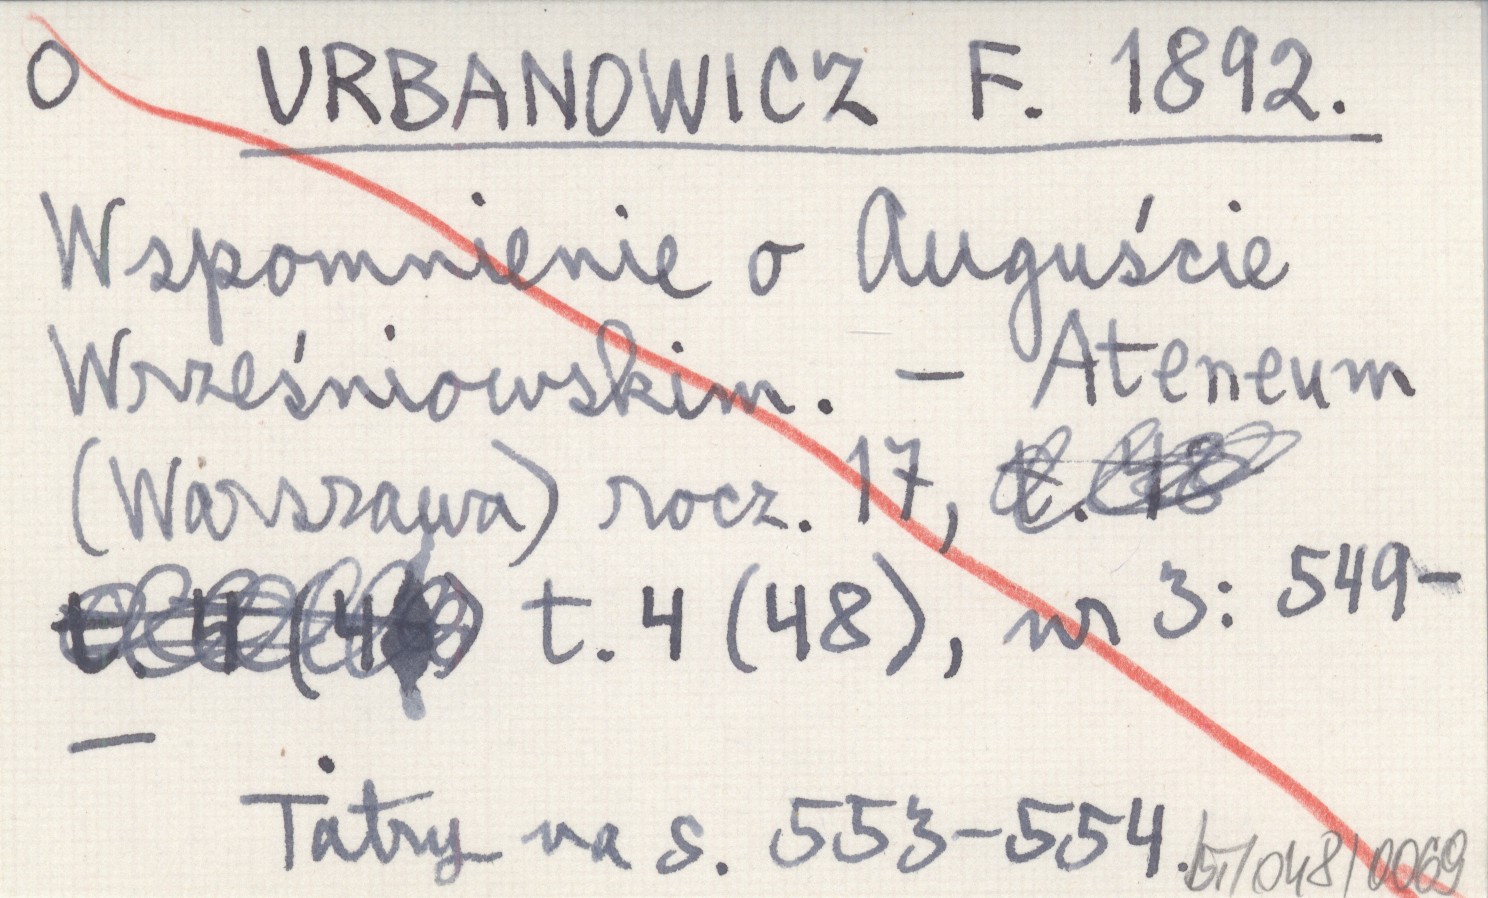 O URBANOWICZ F. 1892.
Wspomnienie o Auguście
Wrześniowskim. – Ateneum
(Warszawa) rocz. 17, t. 48
t. 4 (48) t. 4 (48), nr 3: 549–
–
Tatry na s. 553–554.
/048/0069